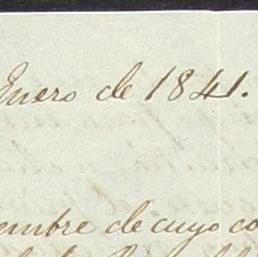 Enero de 1841.
embre de cuyo co